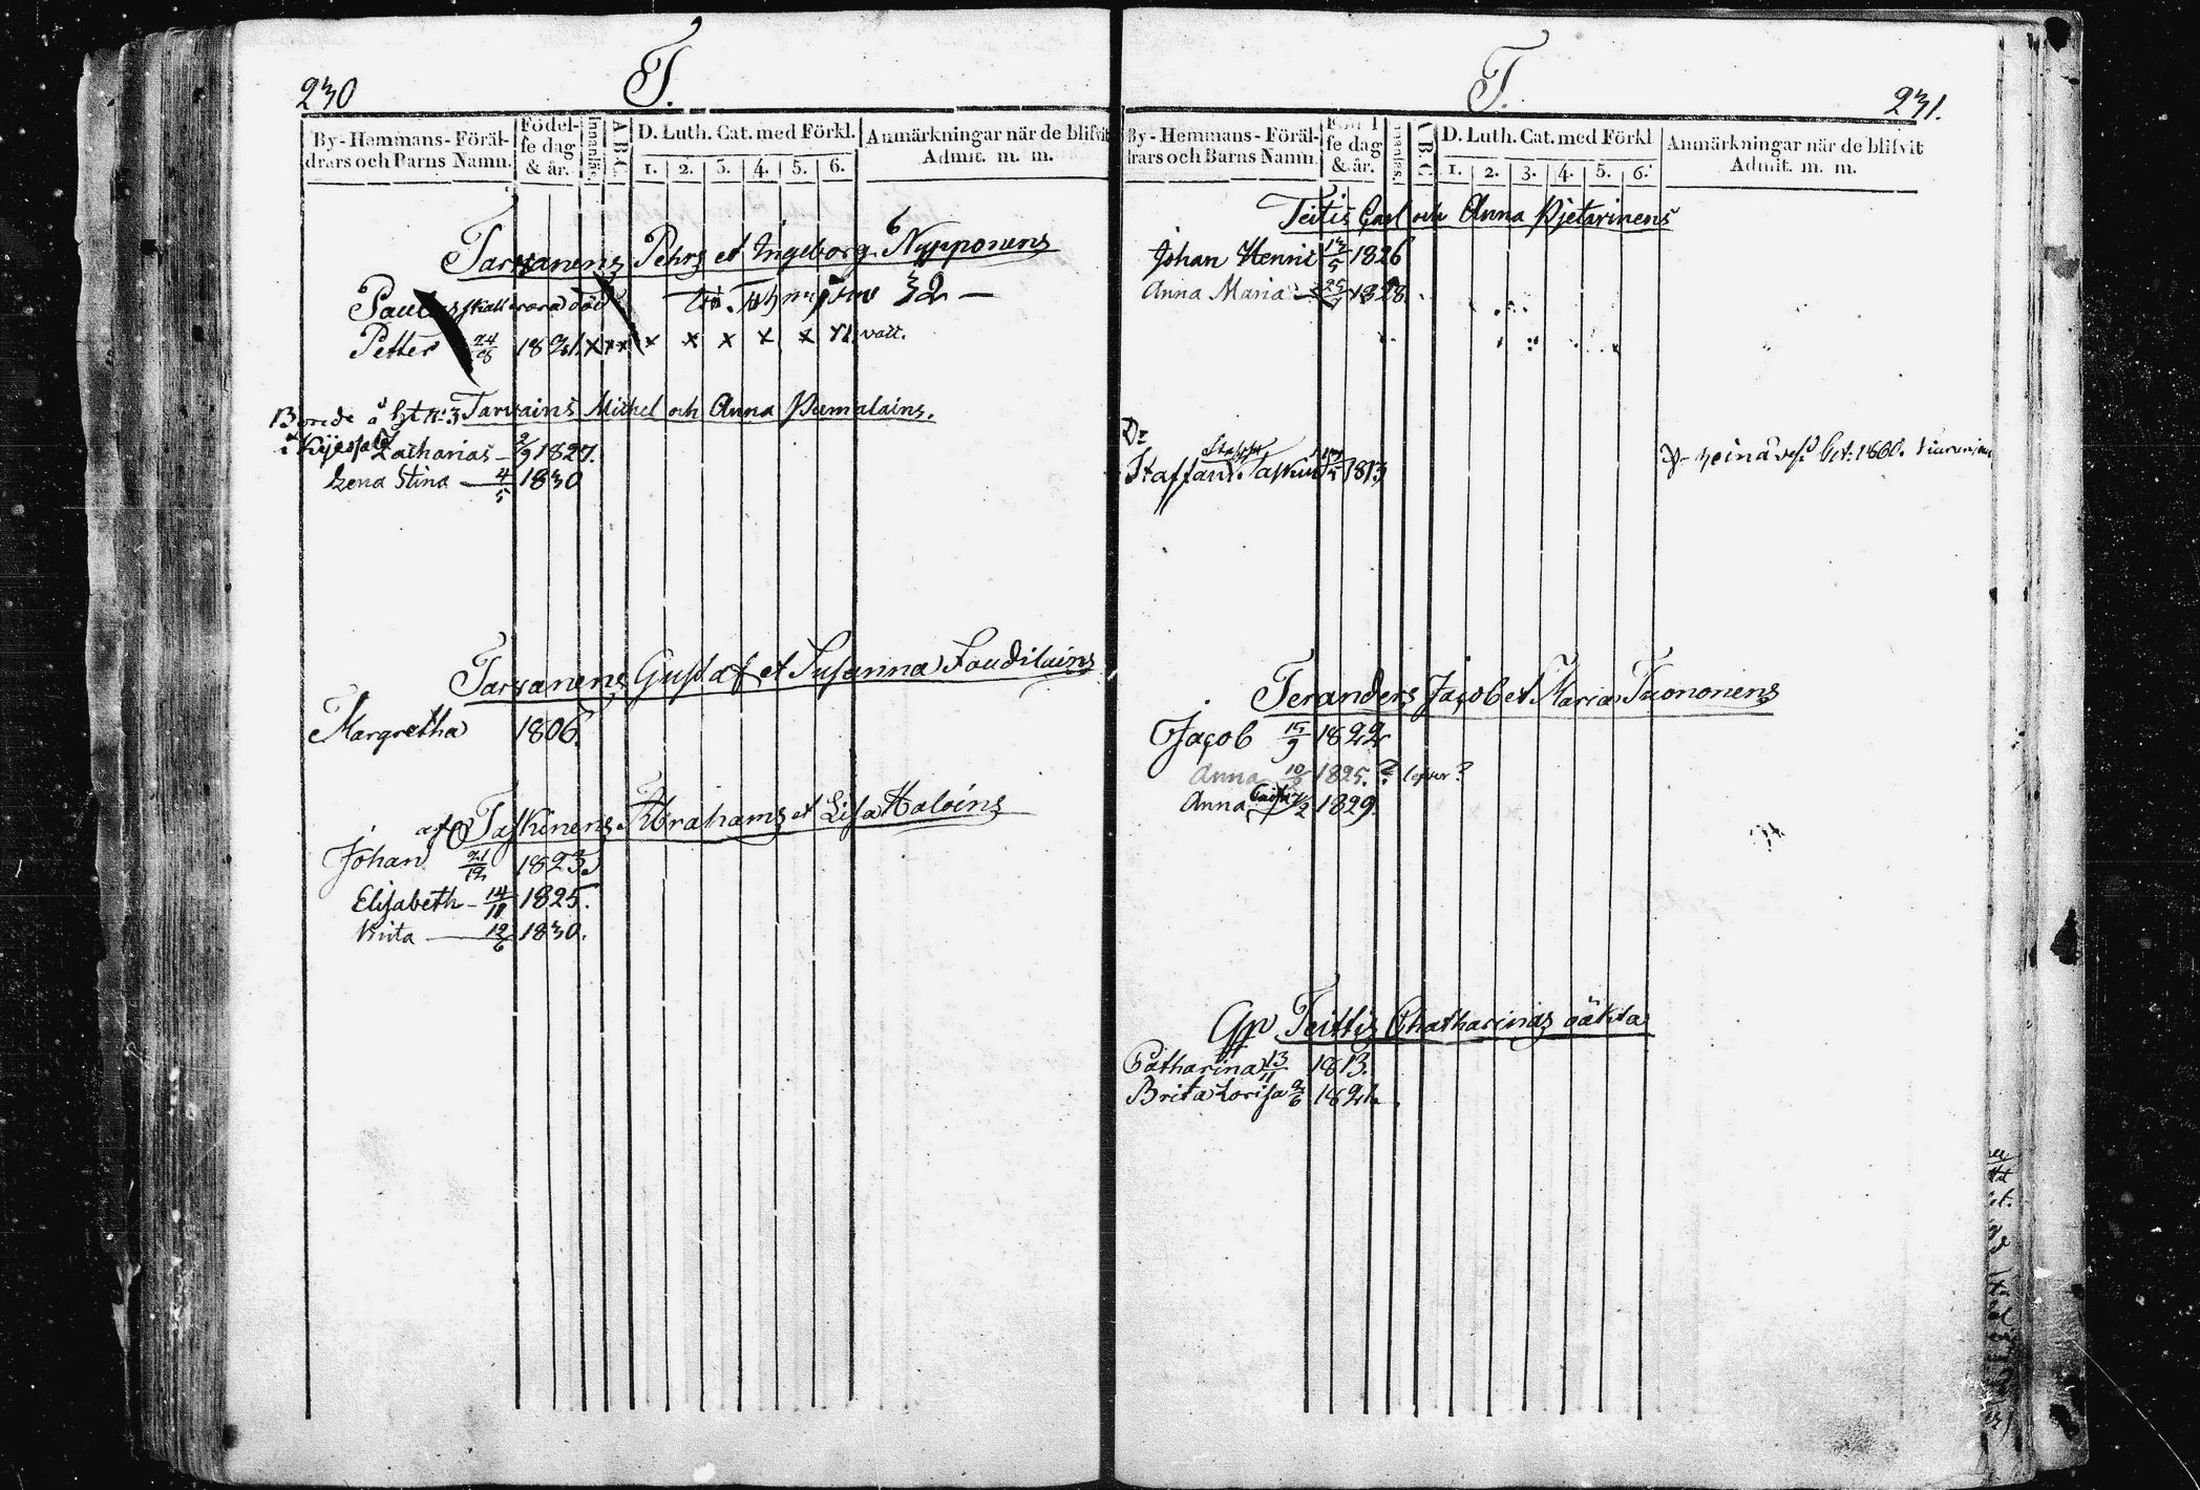 230
T.
By-Hemmans-Föräl-
drars och Barns Namn.
Födel-
se dag
& år.
Innanläs.
A B C.
D. Luth. Cat. med Förkl.
1. 2. 3. 4. 5. 6.
Anmärkningar när de blifvit
Admit. m. m.
Tarvanens Pehrs et Ingeborg Nypponens
Paulus skall vara död 32 —
Petter 24/8 1821. x x x x x x x x
Bonde å
Tarvains Michel och Anna Pumalains.
Zacharias — 2/9 1827.
Lena Stina — 4/5 1830
Tarvanens Gustaf et Susanna Laudilains
Margretha 1806.
Taskinens Abrahams et Lisa Haloins
Johan 21/12 1823.
Elisabeth — 14/11 1825.
Brita — 12/6 1830.
T.
231.
By-Hemmans-Föräl-
drars och Barns Namn.
se dag
& år.
A B C
D. Luth. Cat. med Förkl
1. 2. 3. 4. 5. 6.
Anmärkningar när de blifvit
Admit. m. m.
Teitis Carl och Anna Pjetarinens
Johan Henric 12/5 1826
Anna Maria 1828.
Staffan 1813
Teranders Jacob et Maria Tuononens
Jacob 15/9 1822
Anna 1825. ?
Anna Caisa 7/2 1829.
Teittis Chatharinas oäkta
Catharina 13/11 1813.
Brita Lovisa 2/6 1821.